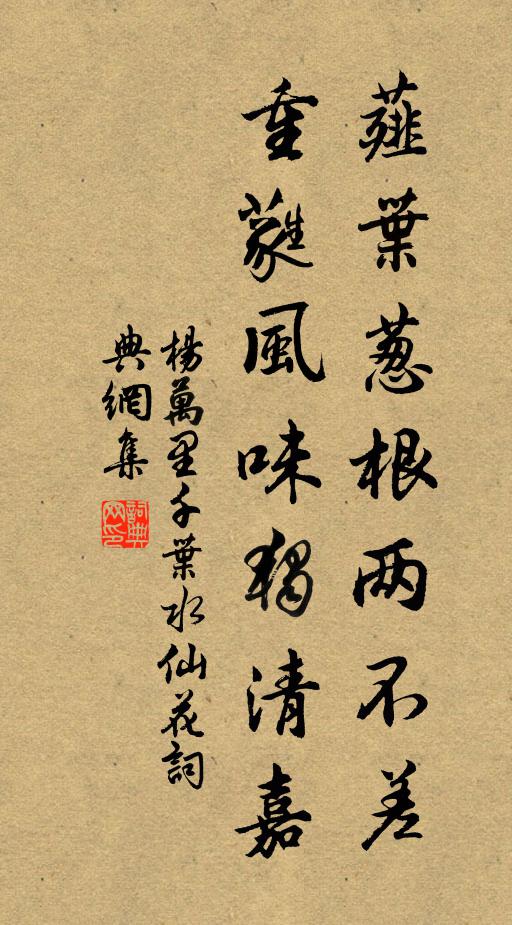 薤葉葱根两不差
重蕤風味獨清嘉
楊萬里千葉水仙花詞
典網集
詞典
网印